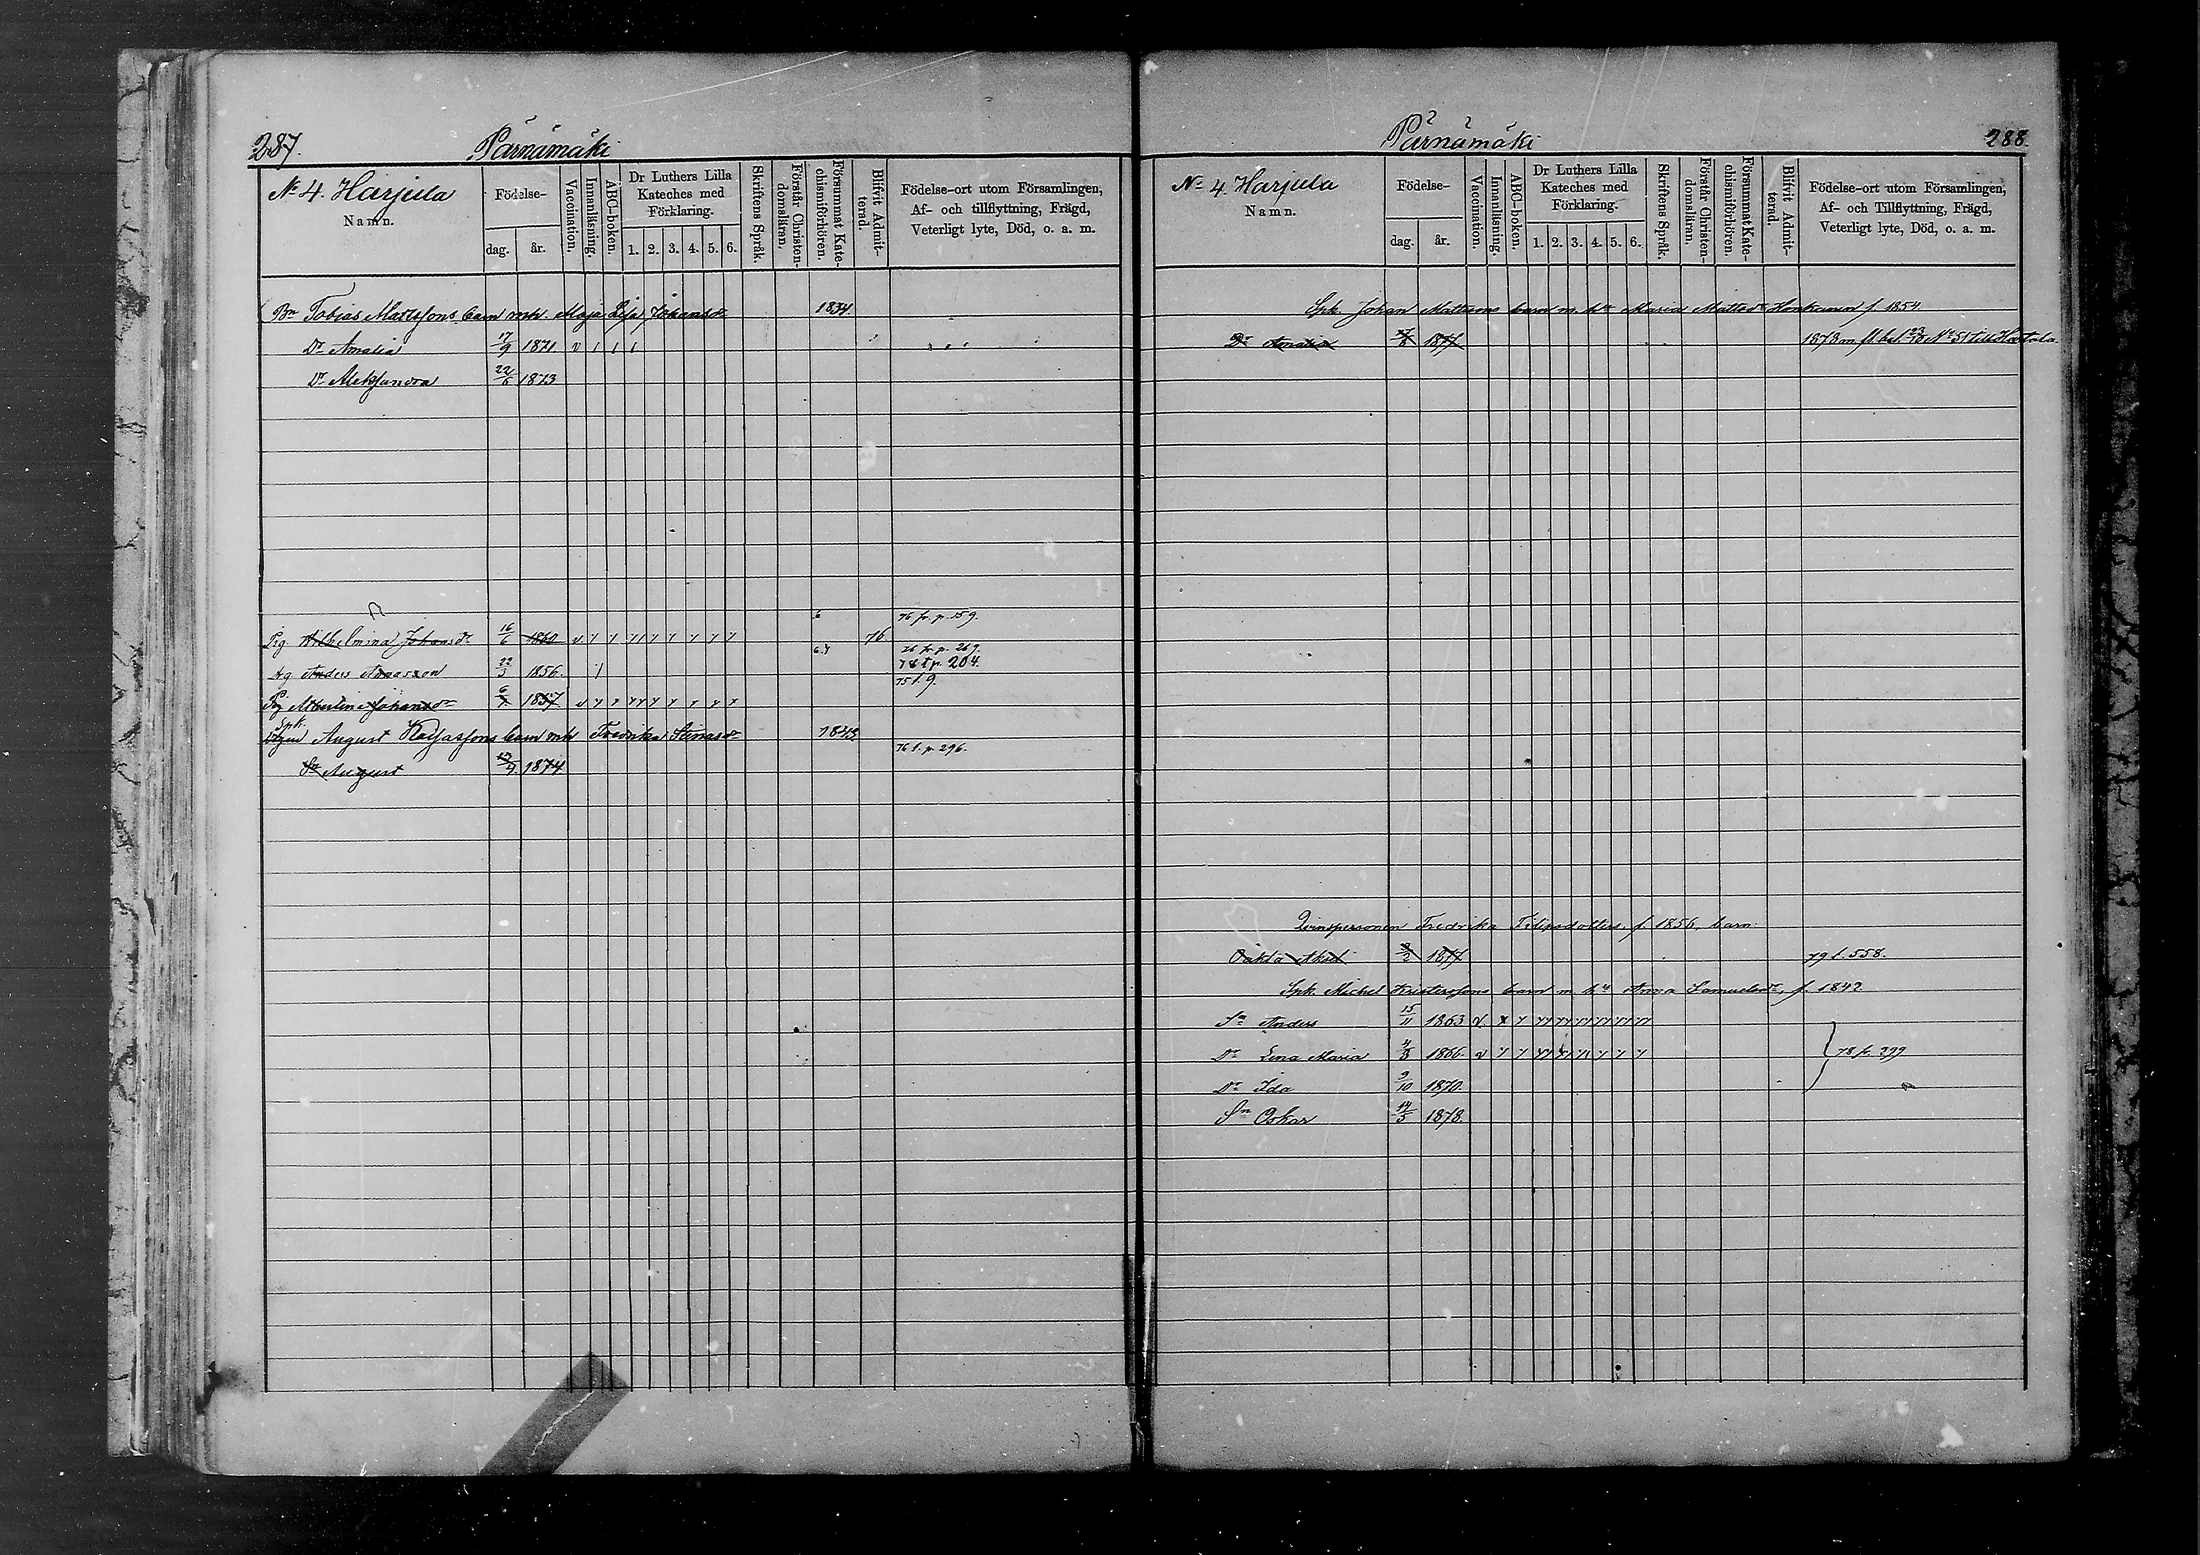 287.
Pärnämäki
N° 4. Harjula
Namn.
Födelse-
dag.
år.
Vaccination.
Innanläsning.
ABC-boken.
Dr Luthers Lilla
Kateches med
Förklaring.
1. 2. 3. 4. 5. 6.
Skriftens Språk.
Förstår Christen-
domsläran.
Försummat Kate-
chismiförhören.
Blifvit Admit-
terad.
Födelse-ort utom Församlingen,
Af- och tillflyttning, Frägd,
Veterligt lyte, Död, o. a. m.
Bn Tobias Mattssons barn mh. Maja Lisa Johansdr 1834
Dr Amalia 17/9 1871 v
Dr Aleksandra 22/6 1873
6 76 fr. p. 159.
Pig Wilhelmina Johansdr 16/6 1860 v 76
6.7 76 fr. p. 269.
78 t p. 204.
Dg Anders 22/3 1856.
75 t. 9.
Pig Johansdr 1857 v
Spk.
August barn mh Fredrika 1843
76 t. p. 296.
Sn August 1874
288.
Pärnämäki
N° 4. Harjula
Namn.
Födelse-
dag.
år.
Vaccination.
Innanläsning.
ABC-boken.
Dr Luthers Lilla
Kateches med
Förklaring.
1. 2. 3. 4. 5. 6.
Skriftens Språk.
Förstår Christen-
domsläran.
Försummat Kate-
chismiförhören.
Blifvit Admit-
terad.
Födelse-ort utom Församlingen,
Af- och Tillflyttning, Frägd,
Veterligt lyte, Död, o. a. m.
Spk. Johan Mattssons barn m. hu Maria Mattsdr Honkanen f. 1854.
Dr Amalia 1877 1878 m fl. bet. N° 51 till Hartola.
Qvinspersonen Fredrika Filipsdotters, f. 1856, barn:
Oäkta Aksel 1877 79 t. 558.
Spk. Michel Kristerssons barn m. hu Anna Samuelsdr, f. 1842
Sn Anders 15/11 1863 v.
Dr Lena Maria 4/3 1866. v 78 fr. 399
Dr Ida 9/10 1870.
Sn Oskar 14/3 1878.